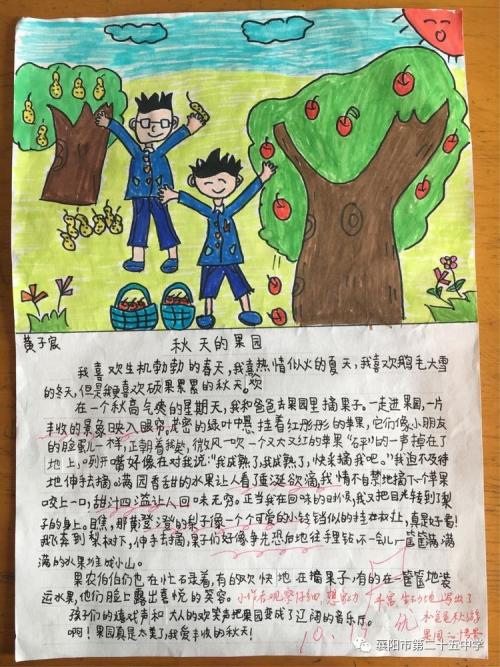 黄子宸 秋天的果园
我喜欢生机勃勃的春天，我喜热情似火的夏天，我喜欢鹅毛大雪
的冬天，但是我更喜欢硕果累累的秋天。
在一个秋高气爽的星期天，我和爸爸去果园里摘果子。一走进果园，一片
丰收的景象映入眼帘，茂密的绿叶中悬挂着红彤彤的苹果，它们像小朋友
的脸蛋儿一样，正朝着我笑，微风一吹一个又大又红的苹果“ 的一声掉在了
地上，咧开嘴好像在对我说：“我成熟了，我成熟了，快来摘我吧。”我迫不及待
地伸手去摘。满园香甜的水果让人看了垂涎欲滴，我情不自禁地摘下个苹果
咬上一口，甜汁四溢让人回味无穷。正当我在回味的时候，我又把目光转到了梨
子的身上。瞧，那黄澄澄的梨子像一个个可爱的小铃铛似的挂在枝 ，真是好看！
我飞奔到梨树下，伸手去摘，果子们好像争先恐后地往 里钻不一会儿，一筐筐满满
满的水果堆成小山。
果农伯伯们也在忙 着，有的欢快地在摘果子，有的在一筐筐地装
运水果，他们脸上露出喜悦的笑容。 小作者观察仔细，想象力
丰富， 地写出了
孩子们的嬉戏声和大人的欢笑声把果园变成了辽阔的音乐厅。
和爸爸秋游
果园 情景
啊！果园真是太美了，我爱丰收的秋天！
优
10.17
襄阳市第二十五中学